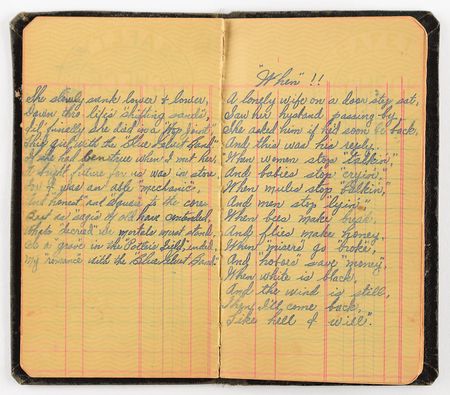 She slowly sunk lower & lower,
Down thro life's "shifting sands",
Til finally she died in a "Hop Joint",
This girl with the "Blue Velvet Band"
If she had been true when I met her,
A bright future for us was in store
For I was an able "mechanic",
But honest and square to the core.
But as sages of old have contended,
What's decreed us mortals must stand,
So a grave in the Potters field, ended
My "romance" with the "Blue Velvet Band".
"When" !!
A lonely wife on a door step sat,
Saw her husband passing by
She asked him if he'd soon be back,
And this was his reply.
When women stop "talkin",
And babies stop "cryin",
When mules stop "kickin",
And men stop "lyin",
When bees make
And flies make honey,
When "misers" go "broke",
And "hoboes" save "money",
When white is black,
And the wind is still,
Then I'll come back,
Like hell I will".